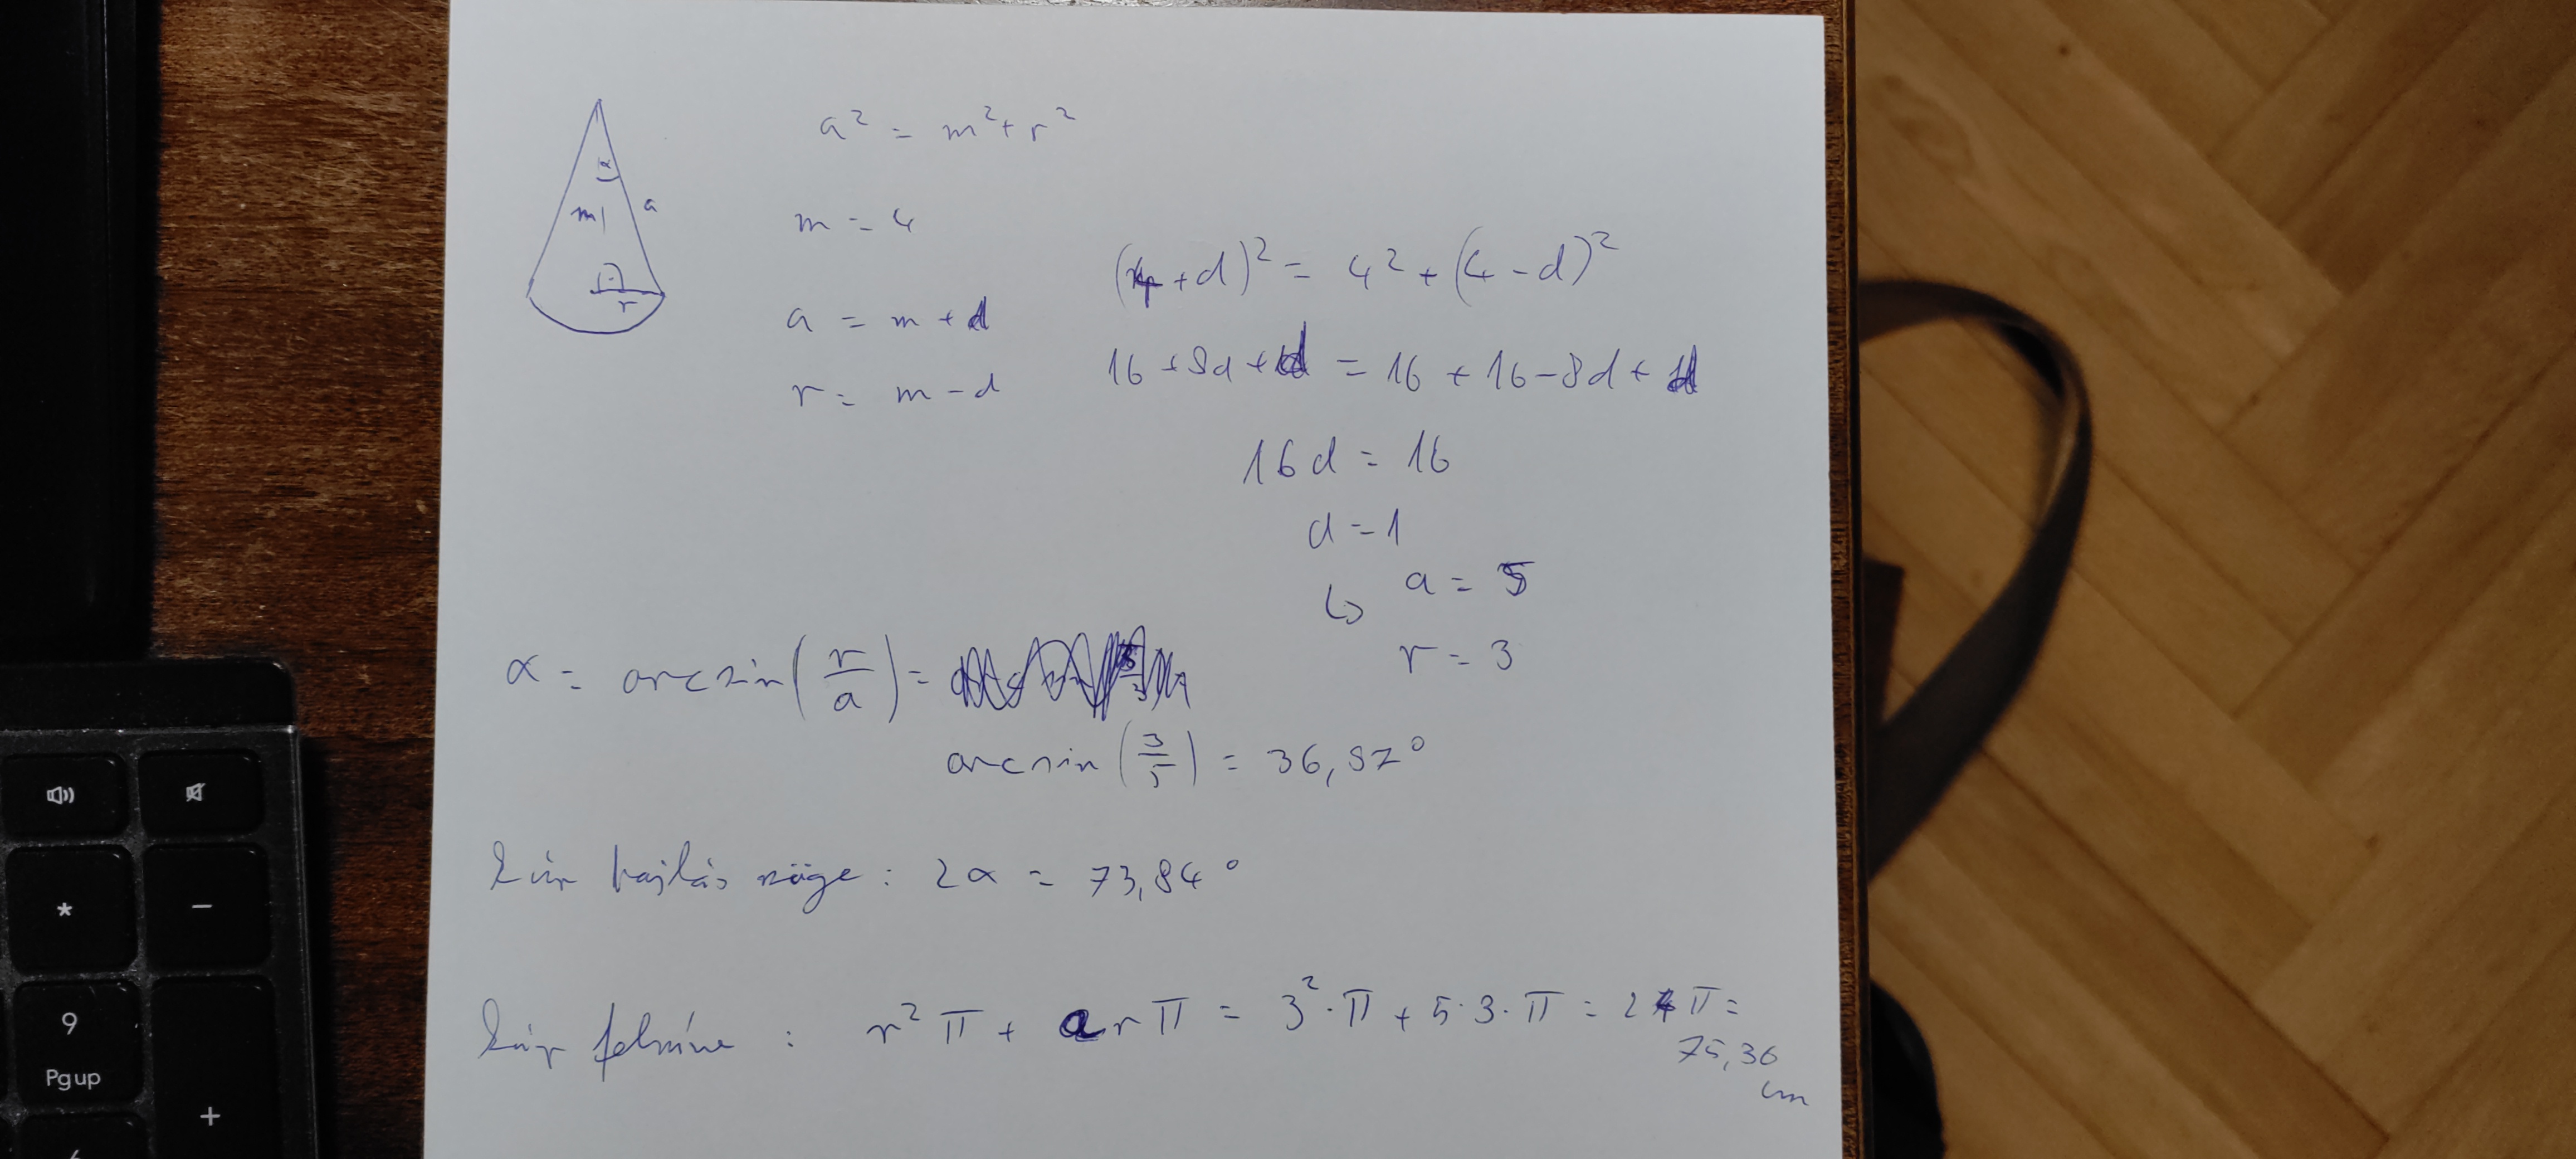 α
m
a
r
a² = m² + r²
m = 4
a = m + d
r = m - d
(4 + d)² = 4² + (4 - d)²
16 + 8d + d = 16 + 16 - 8d + d
16 d = 16
d = 1
↳ a = 5
r = 3
α = arcsin(r/a) =
arcsin(3/5) = 36,87°
Kúp hajlás szöge : 2α = 73,84°
Kúp felszíne : r² π + a r π = 3² · π + 5 · 3 · π = 24 π =
75,36
cm
*
-
9
Pgup
+